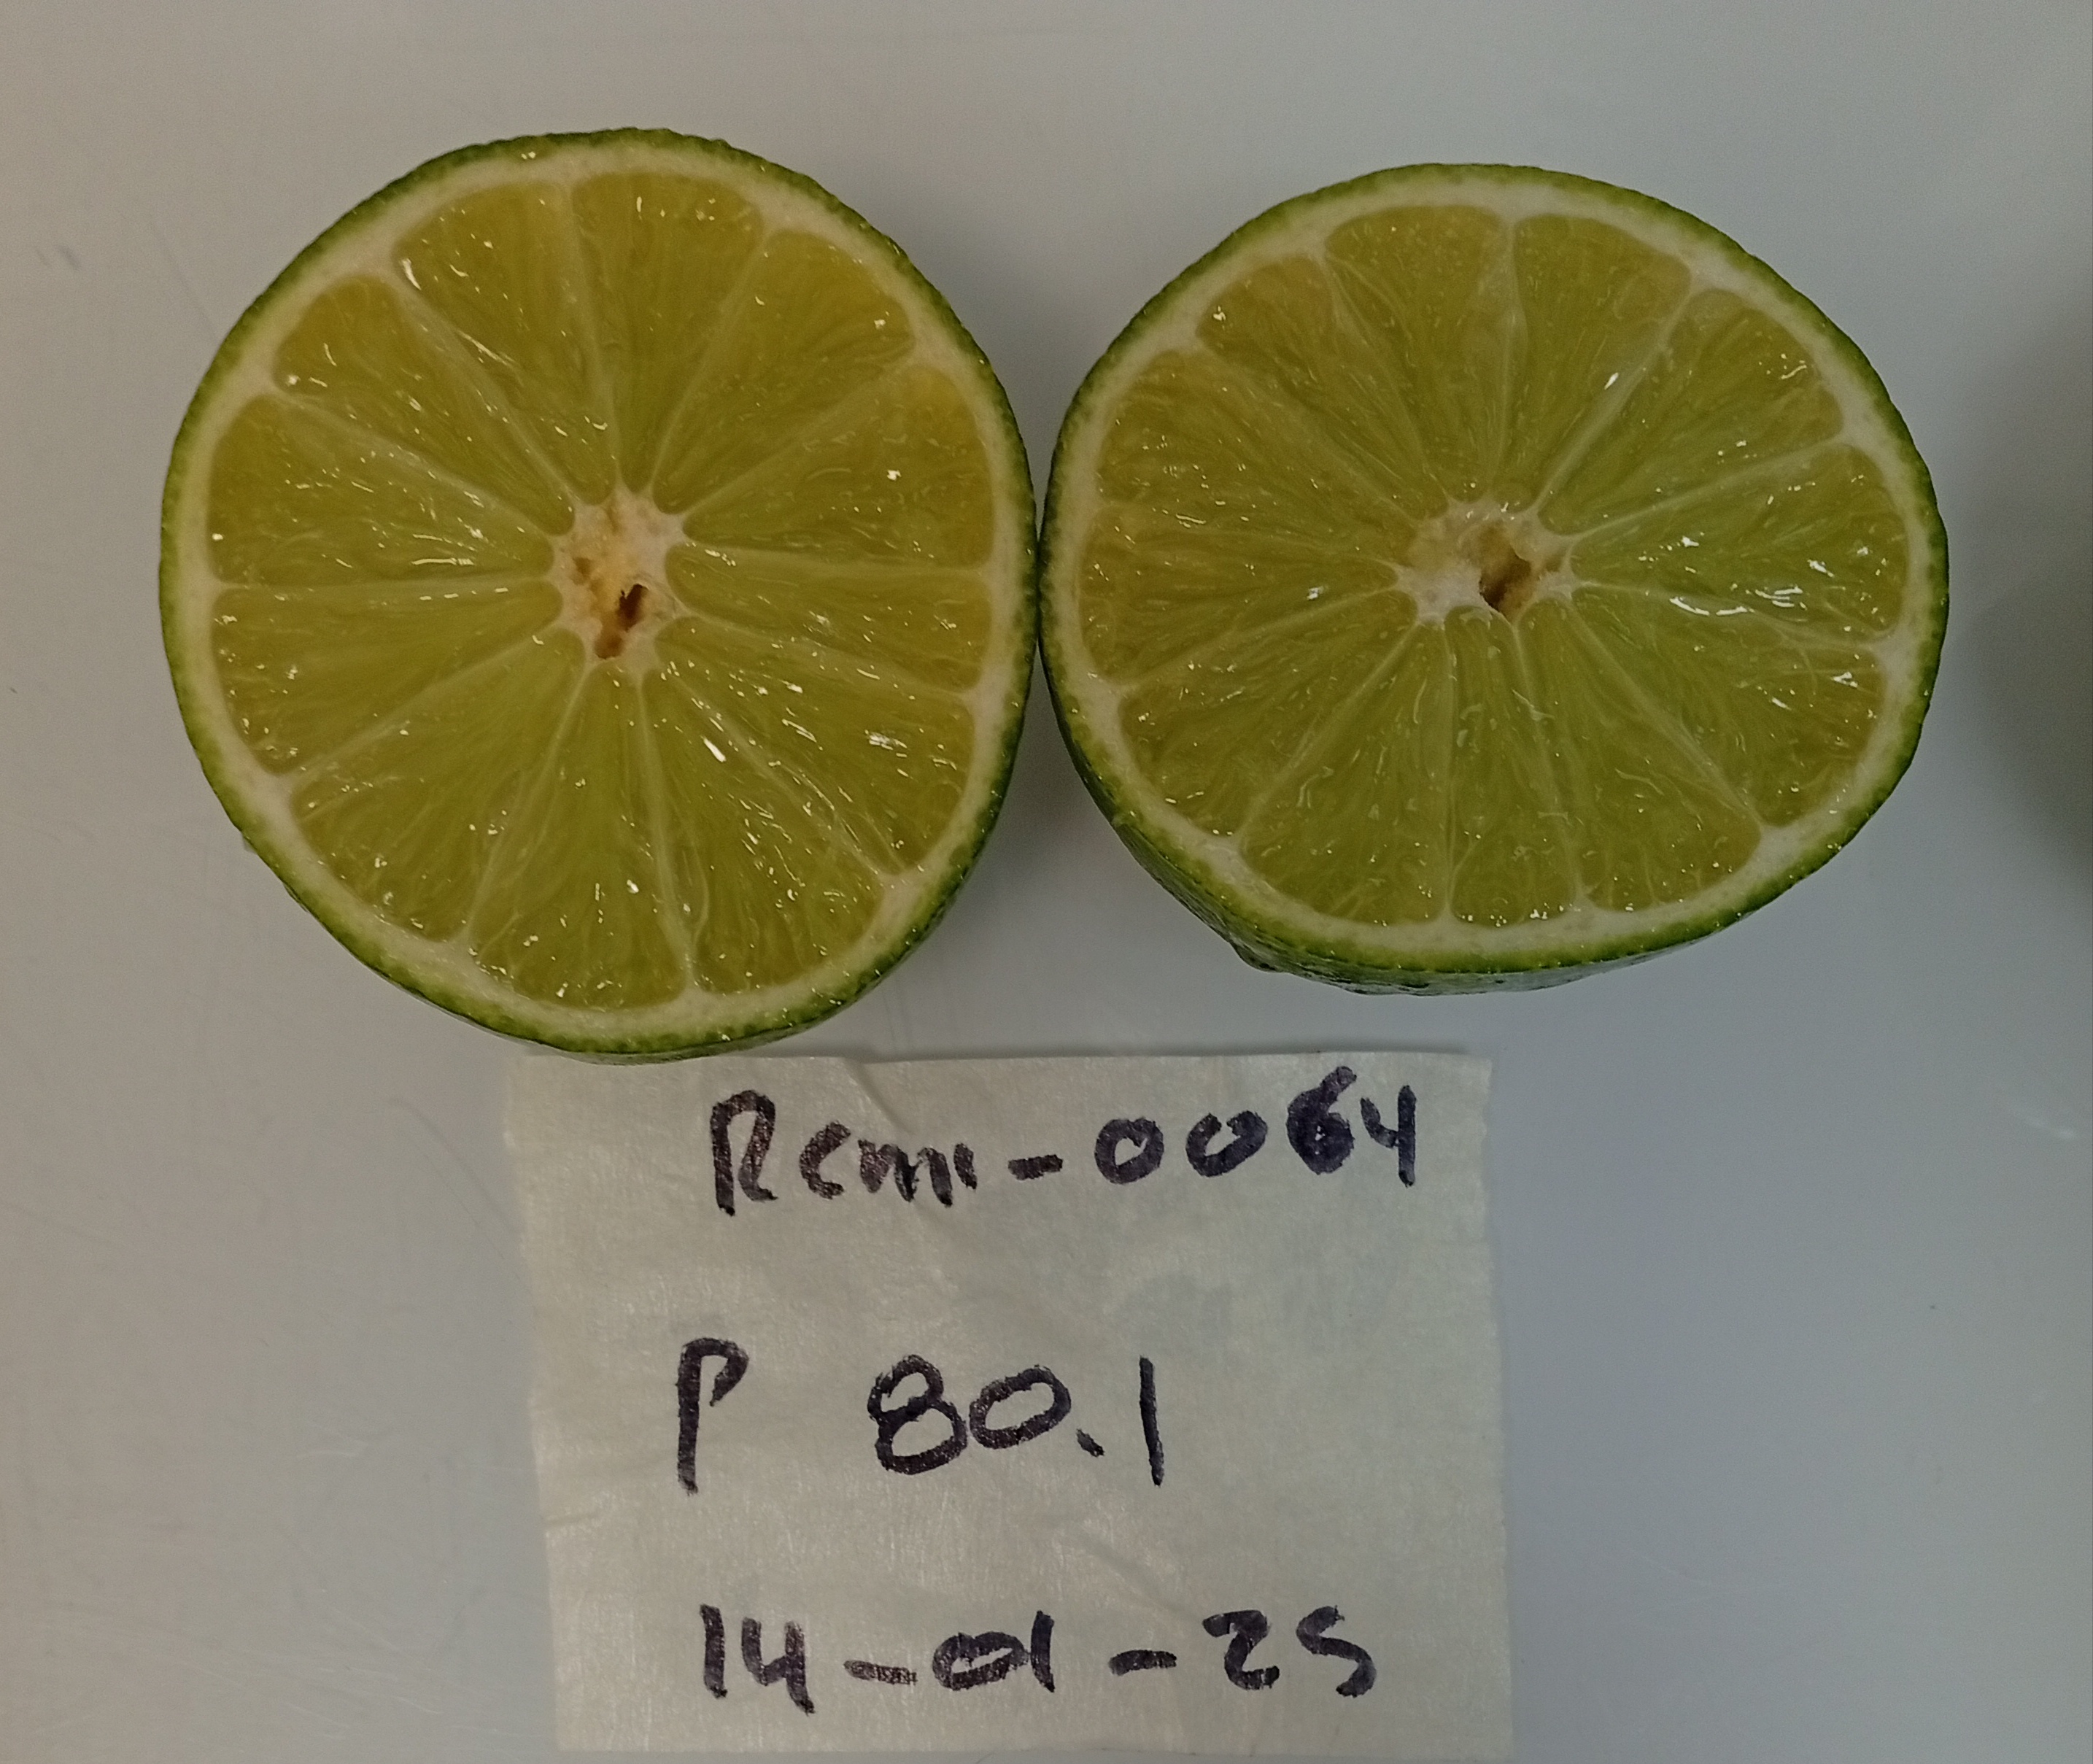 Rcmi-0064
P 80.1
14-01-25